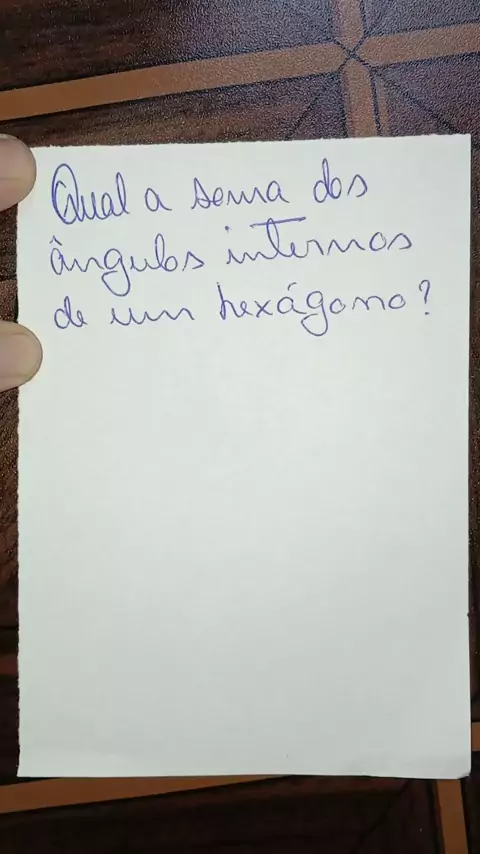 Qual a soma dos
ângulos internos
de um hexágono?